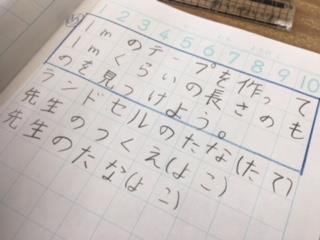 1 2 3 4 5 6 7 8 9 10
1mのテープを作って
1mくらいの長さのも
のを見つけよう。
ランドセルのたな(たて)
先生のつくえ(よこ)
先生のたな(よこ)